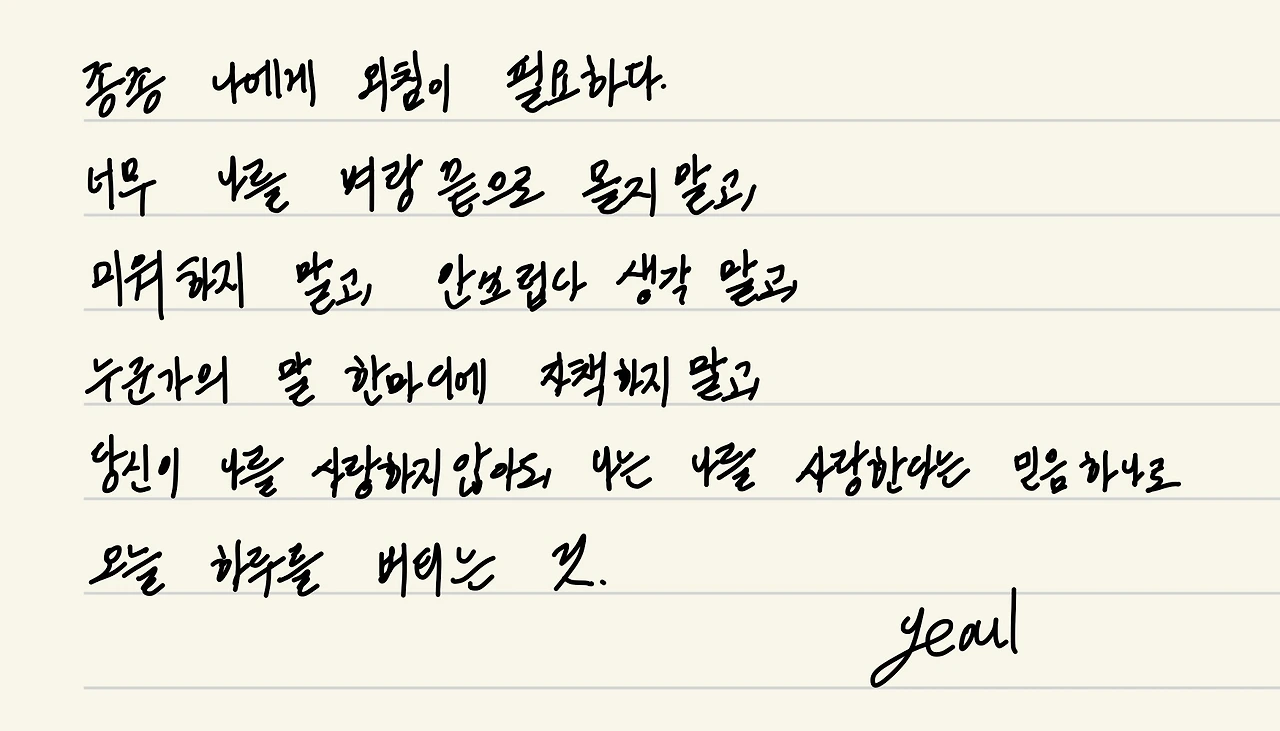 종종 나에게 외침이 필요하다.
너무 나를 벼랑 끝으로 몰지 말고,
미워하지 말고, 안쓰럽다 생각 말고,
누군가의 말 한마디에 자책하지 말고,
당신이 나를 사랑하지 않아도, 나는 나를 사랑한다는 믿음 하나로
오늘 하루를 버티는 것.
yeoul